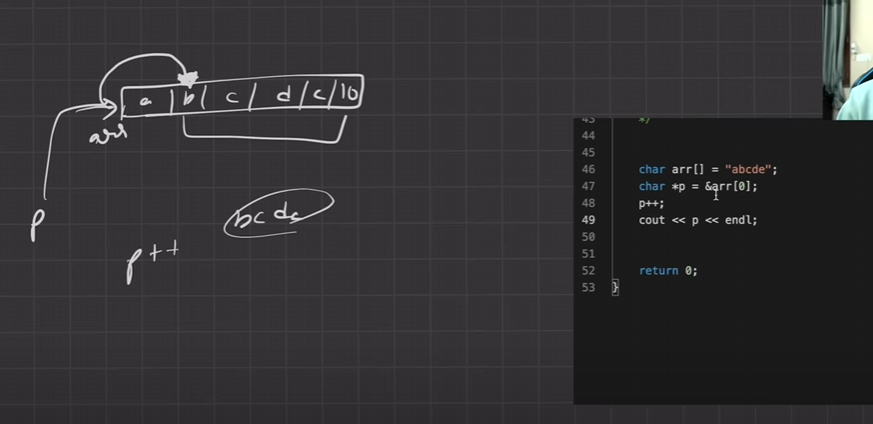 a | b | c | d | c | \0
arr
p
bcde
p++
43 */
44
45
46 char arr[] = "abcde";
47 char *p = &arr[0];
48 p++;
49 cout << p << endl;
50
51
52 return 0;
53 }